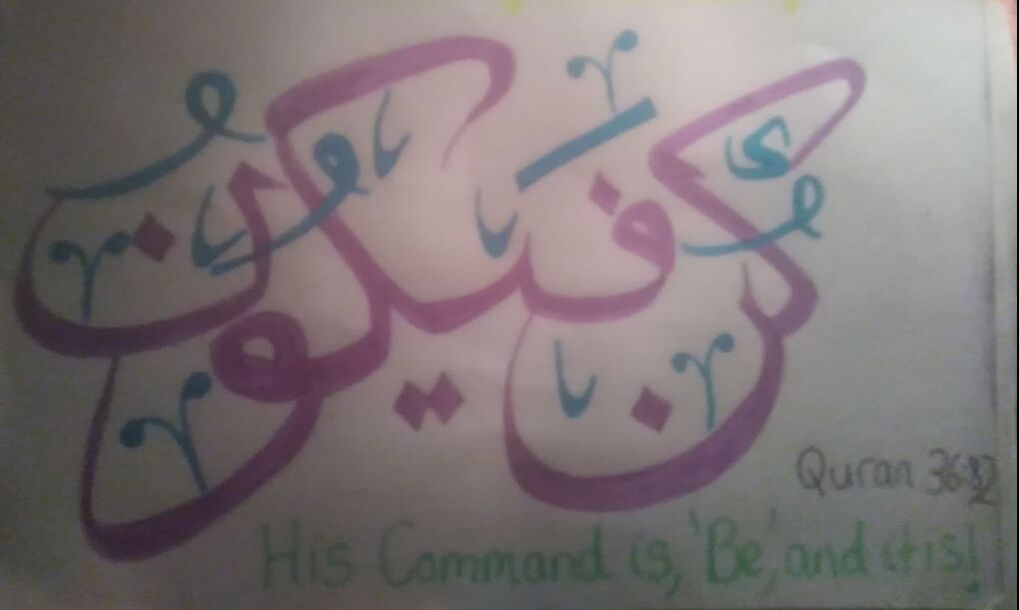 كُن فَيَكُونُ
Quran 36:82
His Command is, 'Be', and it is!